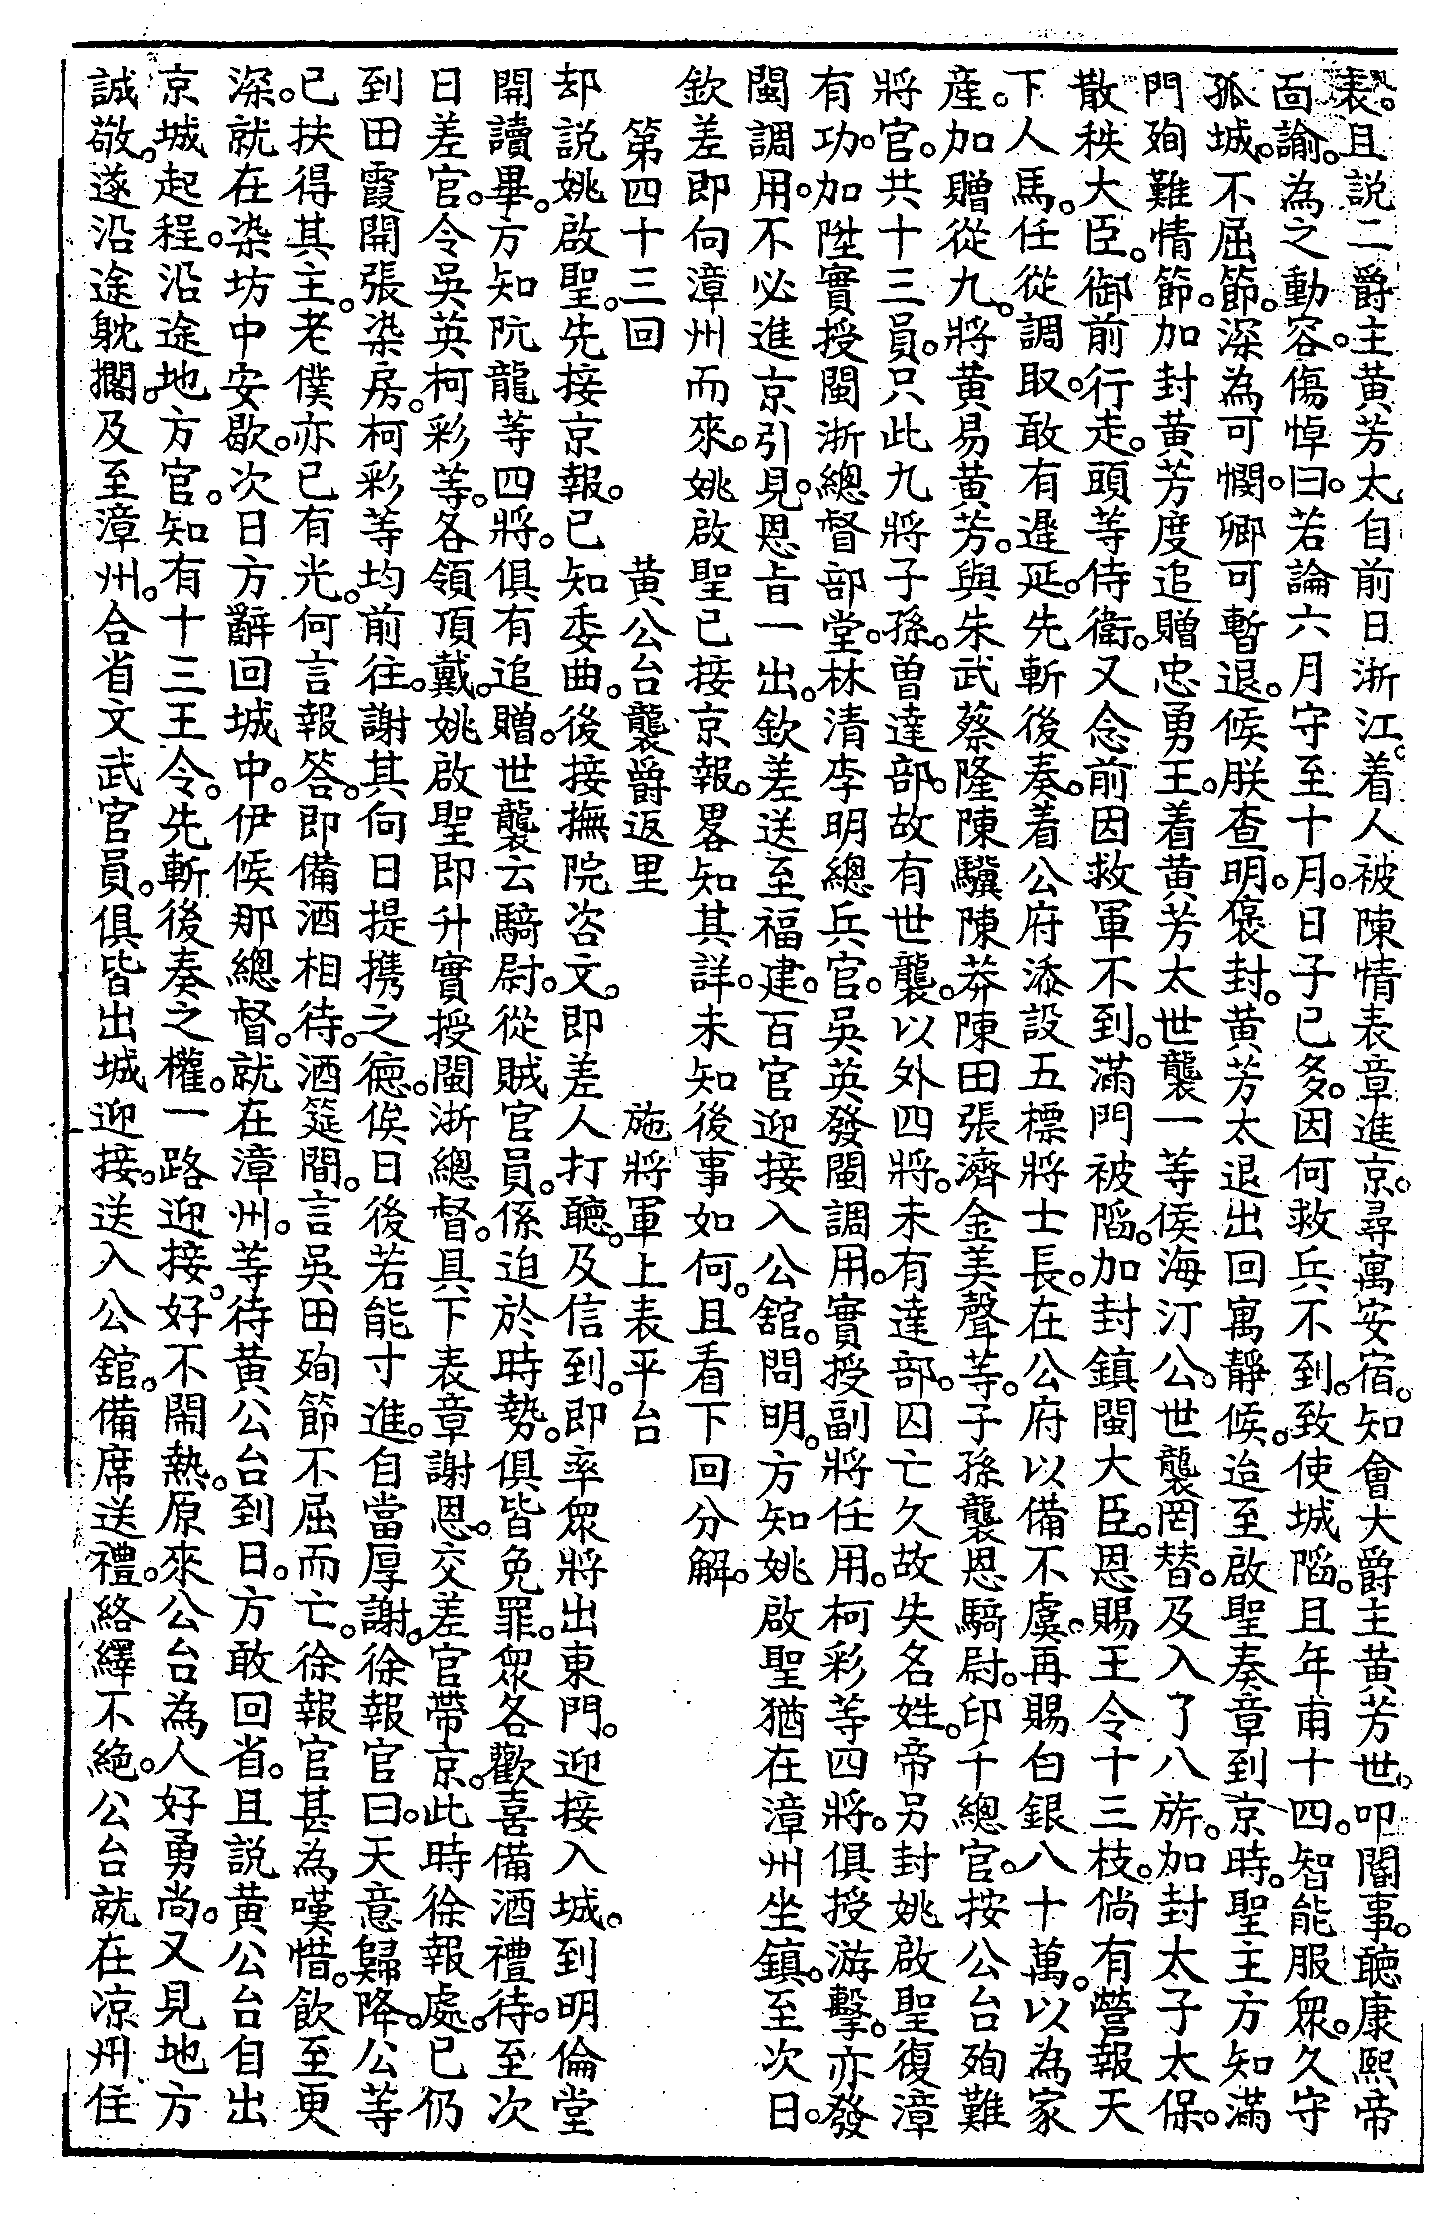 表。且説二爵主黃芳太自前日浙江。着人被陳情表章進京。尋寓安宿。知會大爵主黃芳世。叩閽事。聽康熙帝
面諭。為之動容。傷悼曰。若論六月守至十月。日子已多。因何救兵不到。致使城陷。且年甫十四。智能服眾。久守
孤城。不屈節。深為可憫。卿可暫退。候朕查明。褒封。黃芳太退出回寓靜候。迨至啟聖奏章到京時。聖主方知滿
門殉難情節。加封黃芳度追贈忠勇王。着黃芳太世襲一等侯海汀公。世襲罔替。及入了八旂。加封太子太保。
散秩大臣。御前行走。頭等侍衛。又念前因救軍不到。滿門被陷。加封鎮閩大臣。恩賜王令十三枝。倘有營報天
下人馬。任從調取。敢有遲延。先斬後奏。着公府添設五標將士長。在公府以備不虞。再賜白銀八十萬。以為家
產。加贈從九。將黃易黃芳。與朱武蔡隆陳驥陳莽陳田張濟金美聲等。子孫襲恩騎尉。印千總官。按公台殉難
將官。共十三員。只此九將子孫。曾達部。故有世襲。以外四將。未有達部。因亡久故失名姓。帝另封姚啟聖復漳
有功。加陞實授閩浙總督部堂。林清李明總兵官。吳英發閩調用。實授副將任用。柯彩等四將。俱授游擊。亦發
閩調用。不必進京引見。恩旨一出。欽差送至福建。百官迎接入公舘。問明。方知姚啟聖猶在漳州坐鎮。至次日。
欽差即向漳州而來。姚啟聖已接京報。畧知其詳。未知後事如何。且看下回分解。
第四十三回 黃公台襲爵返里 施將軍上表平台
却説姚啟聖。先接京報。已知委曲。後接撫院咨文。即差人打聽。及信到。即率眾將出東門。迎接入城。到明倫堂
開讀畢。方知阮龍等四將。俱有追贈。世襲云騎尉。從賊官員。係迫於時勢。俱皆免罪。眾各歡喜備酒禮待。至次
日差官。令吳英柯彩等。各領頂戴。姚啟聖即升實授閩浙總督。具下表章謝恩。交差官帶京。此時徐報處。已仍
到田霞開張染房。柯彩等均前往。謝其向日提携之德。俟日後若能寸進。自當厚謝。徐報官曰。天意歸降。公等
已扶得其主。老僕亦已有光。何言報答。即備酒相待。酒筵間。言吳田殉節不屈而亡。徐報官甚為嘆惜。飲至更
深。就在染坊中安歇。次日方辭回城中。伊候那總督。就在漳州。等待黃公台到日。方敢回省。且説黃公台自出
京城起程。沿途地方官。知有十三王令。先斬後奏之權。一路迎接。好不鬧熱。原來公台為人好勇尚。又見地方
誠敬。遂沿途躭擱。及至漳州。合省文武官員。俱皆出城迎接。送入公舘。備席送禮。絡繹不絶。公台就在凉州住